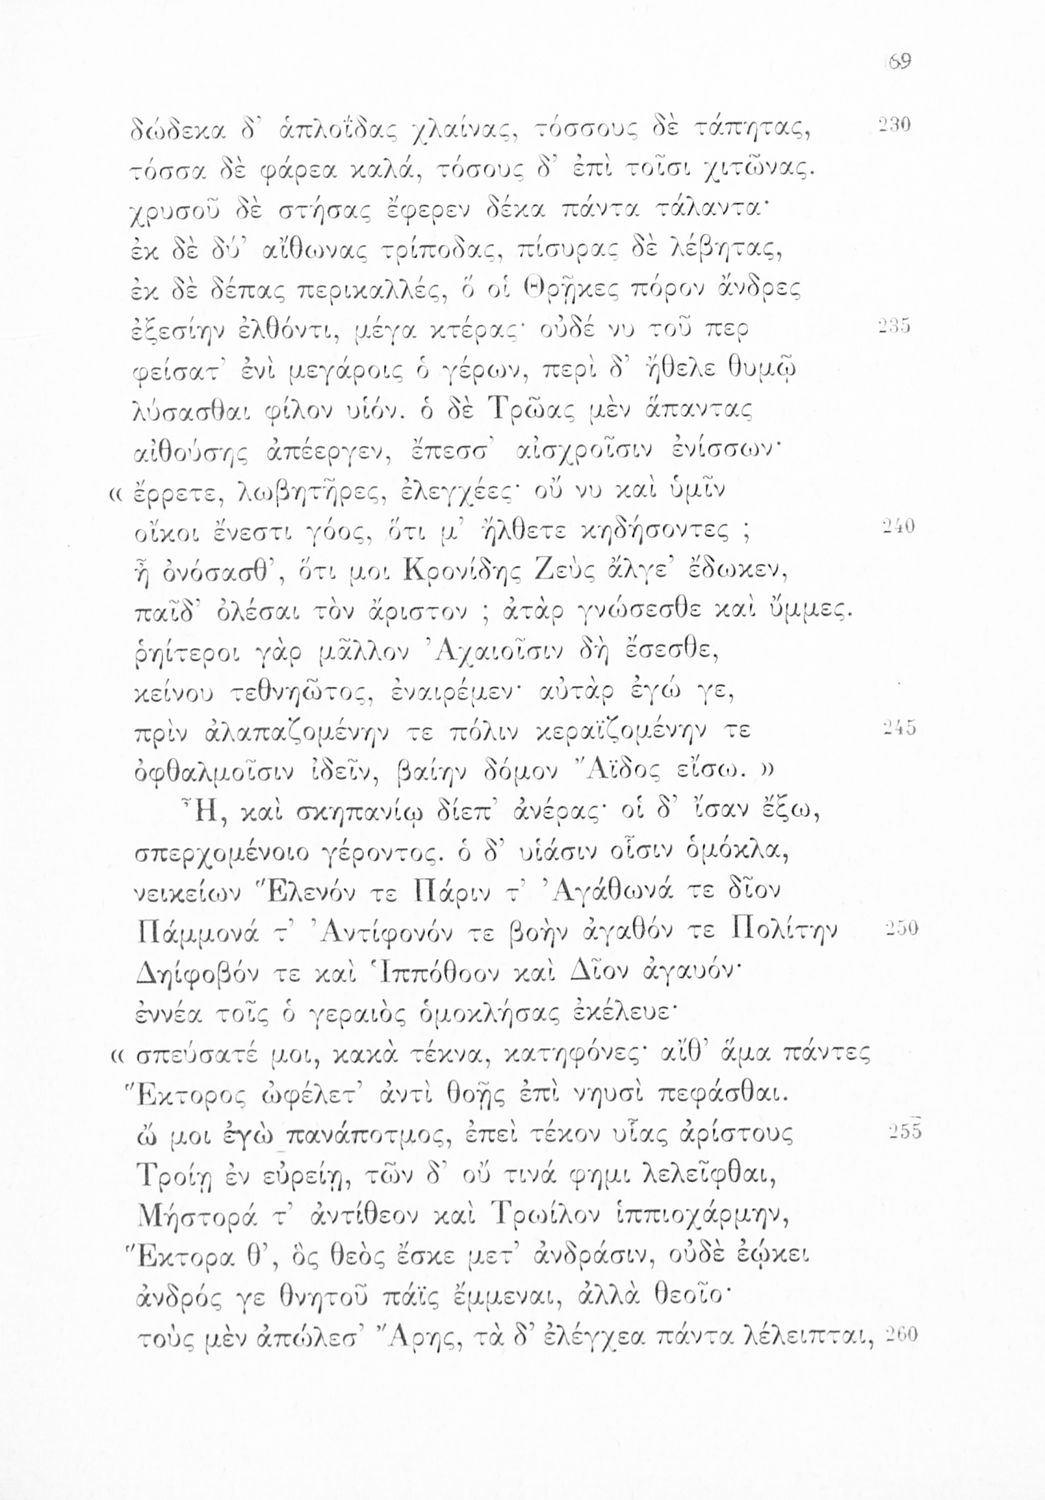 69
δώδεκα δ’ ἁπλοΐδας χλαίνας, τόσσους δὲ τάπητας, 230
τόσσα δὲ φάρεα καλά, τόσους δ’ ἐπὶ τοῖσι χιτῶνας.
χρυσοῦ δὲ στήσας ἔφερεν δέκα πάντα τάλαντα·
ἐκ δὲ δύ’ αἴθωνας τρίποδας, πίσυρας δὲ λέβητας,
ἐκ δὲ δέπας περικαλλές, ὅ οἱ Θρῇκες πόρον ἄνδρες
ἐξεσίην ἐλθόντι, μέγα κτέρας· οὐδέ νυ τοῦ περ 235
φείσατ’ ἐνὶ μεγάροις ὁ γέρων, περὶ δ’ ἤθελε θυμῷ
λύσασθαι φίλον υἱόν. ὁ δὲ Τρῶας μὲν ἅπαντας
αἰθούσης ἀπέεργεν, ἔπεσσ’ αἰσχροῖσιν ἐνίσσων·
« ἔρρετε, λωβητῆρες, ἐλεγχέες· οὔ νυ καὶ ὑμῖν
οἴκοι ἔνεστι γόος, ὅτι μ’ ἤλθετε κηδήσοντες ; 240
ἦ ὀνόσασθ’, ὅτι μοι Κρονίδης Ζεὺς ἄλγε’ ἔδωκεν,
παῖδ’ ὀλέσαι τὸν ἄριστον ; ἀτὰρ γνώσεσθε καὶ ὔμμες.
ῥηίτεροι γὰρ μᾶλλον Ἀχαιοῖσιν δὴ ἔσεσθε,
κείνου τεθνηῶτος, ἐναιρέμεν· αὐτὰρ ἐγώ γε,
πρὶν ἀλαπαζομένην τε πόλιν κεραϊζομένην τε 245
ὀφθαλμοῖσιν ἰδεῖν, βαίην δόμον Ἄϊδος εἴσω. »
Ἦ, καὶ σκηπανίῳ δίεπ’ ἀνέρας· οἱ δ’ ἴσαν ἔξω,
σπερχομένοιο γέροντος. ὁ δ’ υἱάσιν οἷσιν ὁμόκλα,
νεικείων Ἕλενόν τε Πάριν τ’ Ἀγάθωνά τε δῖον
Πάμμονά τ’ Ἀντίφονόν τε βοὴν ἀγαθόν τε Πολίτην 250
Δηίφοβόν τε καὶ Ἱππόθοον καὶ Δῖον ἀγαυόν·
ἐννέα τοῖς ὁ γεραιὸς ὁμοκλήσας ἐκέλευε·
« σπεύσατέ μοι, κακὰ τέκνα, κατηφόνες· αἴθ’ ἅμα πάντες
Ἕκτορος ὠφέλετ’ ἀντὶ θοῇς ἐπὶ νηυσὶ πεφάσθαι.
ὤ μοι ἐγὼ πανάποτμος, ἐπεὶ τέκον υἷας ἀρίστους 255
Τροίῃ ἐν εὐρείῃ, τῶν δ’ οὔ τινά φημι λελεῖφθαι,
Μήστορά τ’ ἀντίθεον καὶ Τρωίλον ἱππιοχάρμην,
Ἕκτορα θ’, ὃς θεὸς ἔσκε μετ’ ἀνδράσιν, οὐδὲ ἐῴκει
ἀνδρός γε θνητοῦ πάϊς ἔμμεναι, ἀλλὰ θεοῖο·
τοὺς μὲν ἀπώλεσ’ Ἄρης, τὰ δ’ ἐλέγχεα πάντα λέλειπται, 260